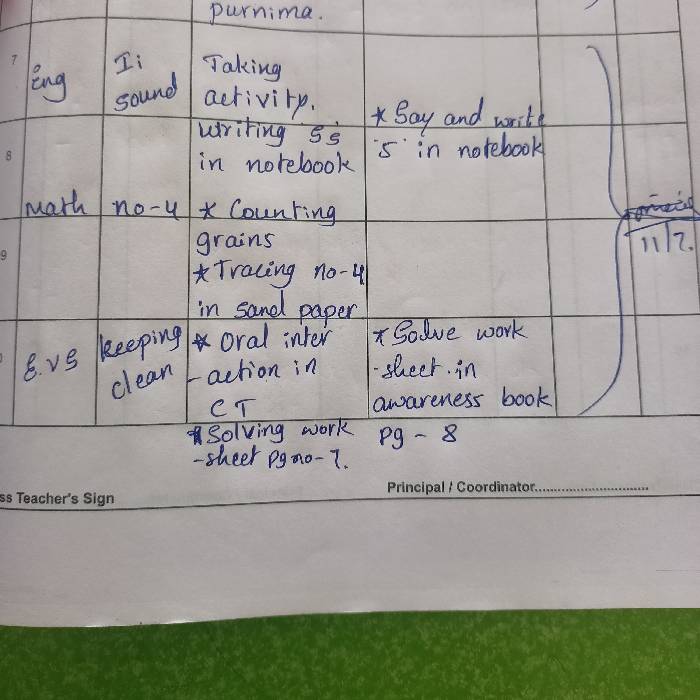 purnima.
7
Eng
Ii
sound
Taking
activity.
* Say and write
8
writing 5s
in notebook
'5' in notebook
Math
no-4
* Counting
grains
* Tracing no-4
in sand paper
9
11/7.
E.VS
keeping
clean
* Oral inter
-action in
CT
* Solve work
-sheet.in
awareness book
* Solving work
-sheet pg no-7.
pg - 8
ss Teacher's Sign
Principal / Coordinator